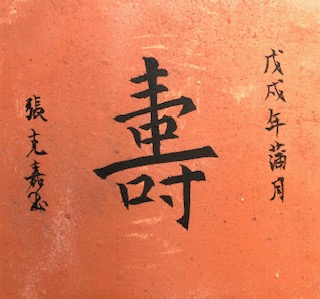 戊戌年蒲月
壽
張克嘉书